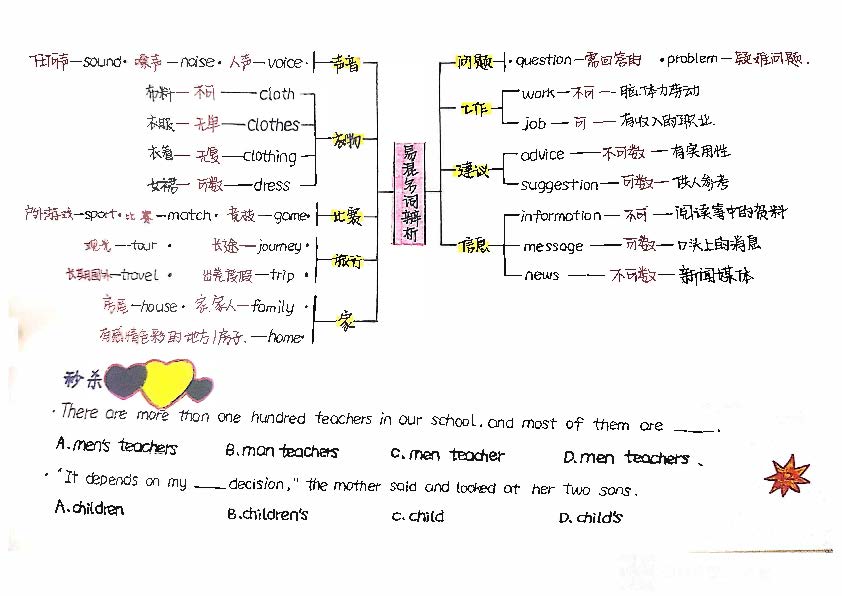 任何声—sound· 噪声—noise· 人声—voice· 声音
布料—不可—cloth
衣服—无单—clothes
衣着—无复—clothing
女裙—可数—dress
衣物
户外游戏—sport·比赛—match· 竞技—game· 比赛
观光—tour· 长途—journey·
长期国外—travel· 出差度假—trip·
旅行
房屋—house· 家,家人—family·
有感情色彩的地方/房子.—home·
家
易混名词辨析
问题 ·question—需回答的 ·problem—疑难问题.
工作
work—不可—脑、体力劳动
job—可—有收入的职业.
建议
advice—不可数—有实用性
suggestion—可数—供人参考
信息
information—不可—阅读等中的资料
message—可数—口头上的消息
news—不可数—新闻媒体
秒杀
·There are more than one hundred teachers in our school, and most of them are ____.
A. men's teachers B. man teachers C. men teacher D. men teachers.
·"It depends on my ____ decision," the mother said and looked at her two sons.
A. children B. children's C. child D. child's